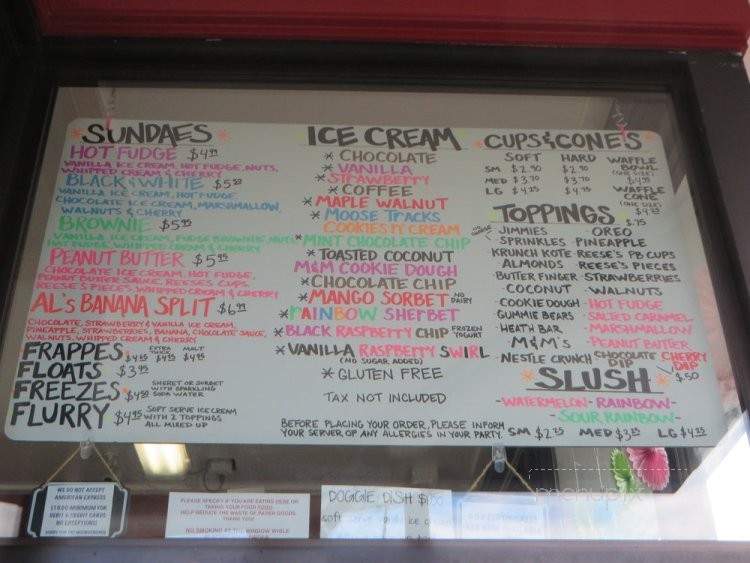 SUNDAES
HOT FUDGE $4.99
VANILLA ICE CREAM, HOT FUDGE, NUTS,
WHIPPED CREAM & CHERRY
BLACK & WHITE $5.50
VANILLA ICE CREAM, HOT FUDGE
CHOCOLATE ICE CREAM, MARSHMALLOW,
WALNUTS & CHERRY
BROWNIE $5.95
VANILLA ICE CREAM, FUDGE BROWNIE, NUTS
HOT FUDGE, WHIPPED CREAM & CHERRY
PEANUT BUTTER $5.95
CHOCOLATE ICE CREAM, HOT FUDGE,
PEANUT BUTTER SAUCE, REESE'S CUPS,
REESE'S PIECES, WHIPPED CREAM & CHERRY
AL'S BANANA SPLIT $6.99
CHOCOLATE, STRAWBERRY & VANILLA ICE CREAM,
PINEAPPLE, STRAWBERRIES, BANANA, CHOCOLATE SAUCE,
WALNUTS, WHIPPED CREAM & CHERRY
FRAPPES $4.25 EXTRA THICK $4.75 MALT $4.75
FLOATS $3.95
FREEZES $4.50 SHERBET OR SORBET
WITH SPARKLING
SODA WATER
FLURRY $4.75 SOFT SERVE ICE CREAM
WITH 2 TOPPINGS
ALL MIXED UP
ICE CREAM
* CHOCOLATE
* VANILLA
* STRAWBERRY
* COFFEE
* MAPLE WALNUT
* MOOSE TRACKS
COOKIES 'N CREAM
* MINT CHOCOLATE CHIP
* TOASTED COCONUT
M&M COOKIE DOUGH
* CHOCOLATE CHIP
* MANGO SORBET NO DAIRY
* RAINBOW SHERBET
* BLACK RASPBERRY CHIP FROZEN YOGURT
* VANILLA RASPBERRY SWIRL
(NO SUGAR ADDED)
* GLUTEN FREE
TAX NOT INCLUDED
BEFORE PLACING YOUR ORDER, PLEASE INFORM
YOUR SERVER OF ANY ALLERGIES IN YOUR PARTY.
CUPS & CONES
SOFT HARD
SM $2.90 $2.90
MED $3.70 $3.70
LG $4.25 $4.75
WAFFLE
BOWL
(ONE SIZE)
$4.95
WAFFLE
CONE
(ONE SIZE)
$4.75
TOPPINGS $.75
JIMMIES OREO
SPRINKLES PINEAPPLE
KRUNCH KOTE REESE'S PB CUPS
ALMONDS REESE'S PIECES
BUTTER FINGER STRAWBERRIES
COCONUT WALNUTS
COOKIE DOUGH HOT FUDGE
GUMMIE BEARS SALTED CARAMEL
HEATH BAR MARSHMALLOW
M&M'S PEANUT BUTTER
NESTLE CRUNCH CHOCOLATE DIP CHERRY DIP
$.50
SLUSH
-WATERMELON- RAINBOW-
-SOUR RAINBOW-
SM $2.75 MED $3.25 LG $4.25
WE DO NOT ACCEPT
AMERICAN EXPRESS
$10.00 MINIMUM FOR
DEBIT & CREDIT CARDS
NO EXCEPTIONS!
SORRY FOR THE INCONVENIENCE
PLEASE SPECIFY IF YOU ARE EATING HERE OR
TAKING YOUR FOOD TOGO
HELP REDUCE THE WASTE OF PAPER GOODS.
THANK YOU!
NO SMOKING AT THE WINDOW WHILE
DOGGIE DISH
soft serve
menupix